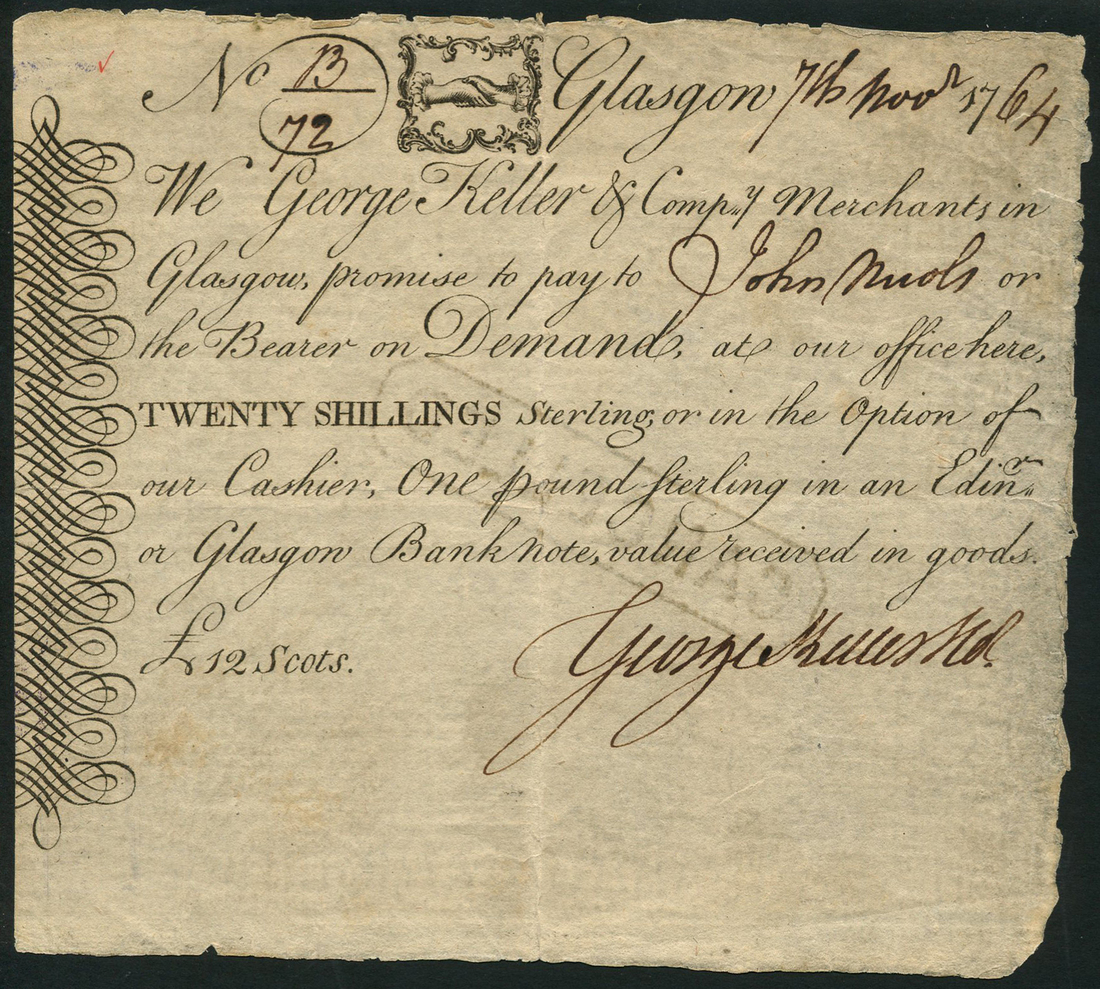 No B/72 Glasgow 7th Novr 1764
We George Keller & Comp.y Merchants in
Glasgow, promise to pay to John or
the Bearer on Demand, at our office here,
TWENTY SHILLINGS Sterling, or in the Option of
our Cashier, One pound Sterling in an Edinr
or Glasgow Bank note, value received in goods.
£12 Scots. George Keller
CANCELLED